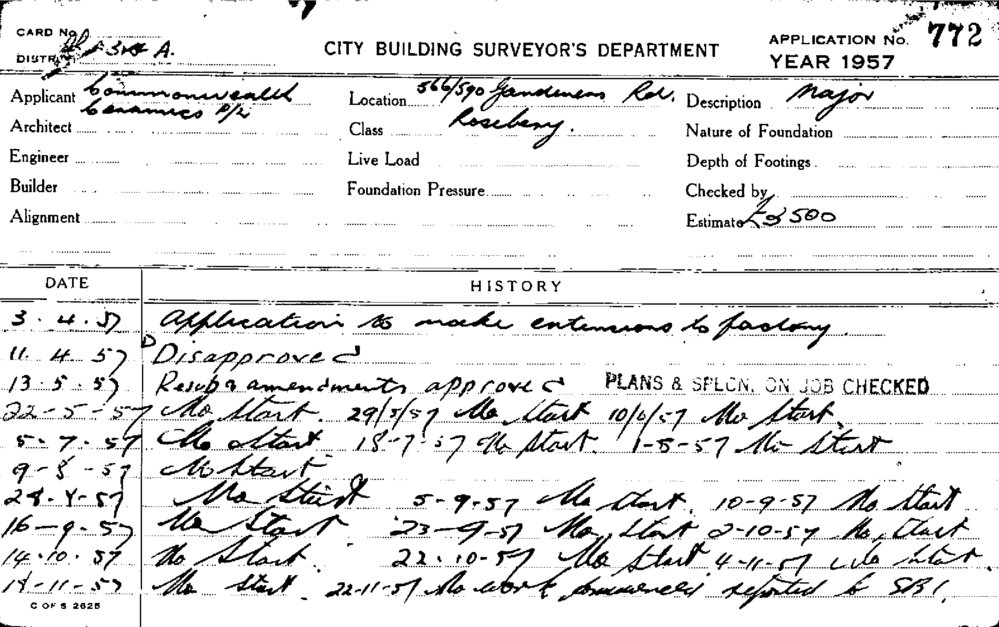 CARD No.
DISTRICT 3rd A.
CITY BUILDING SURVEYOR'S DEPARTMENT
APPLICATION No. 772
YEAR 1957
Applicant Commonwealth Ceramics P/L
Location 566/590 Gardeners Rd. Rosebery.
Description Major
Architect
Class
Nature of Foundation
Engineer
Live Load
Depth of Footings
Builder
Foundation Pressure
Checked by
Alignment
Estimate £3500
DATE HISTORY
3.4.57 Application to make extensions to factory.
11.4.57 Disapproved
13.5.57 amendments approved PLANS & SPECN. ON JOB CHECKED
22-5-57 No Start. 29/5/57 No Start 10/6/57 No Start.
5-7-57 No Start 18-7-57 No Start. 1-8-57 No Start
9-8-57 No Start
28-8-57 No Start 5-9-57 No Start. 10-9-57 No Start
16-9-57 No Start 23-9-57 No Start 2-10-57 No Start
14.10.57 No Start. 22.10-57 No Start 4-11-57 No Start.
18-11-57 No Start. 22-11-57 No work commenced reported to SBI.
C OF S 2625